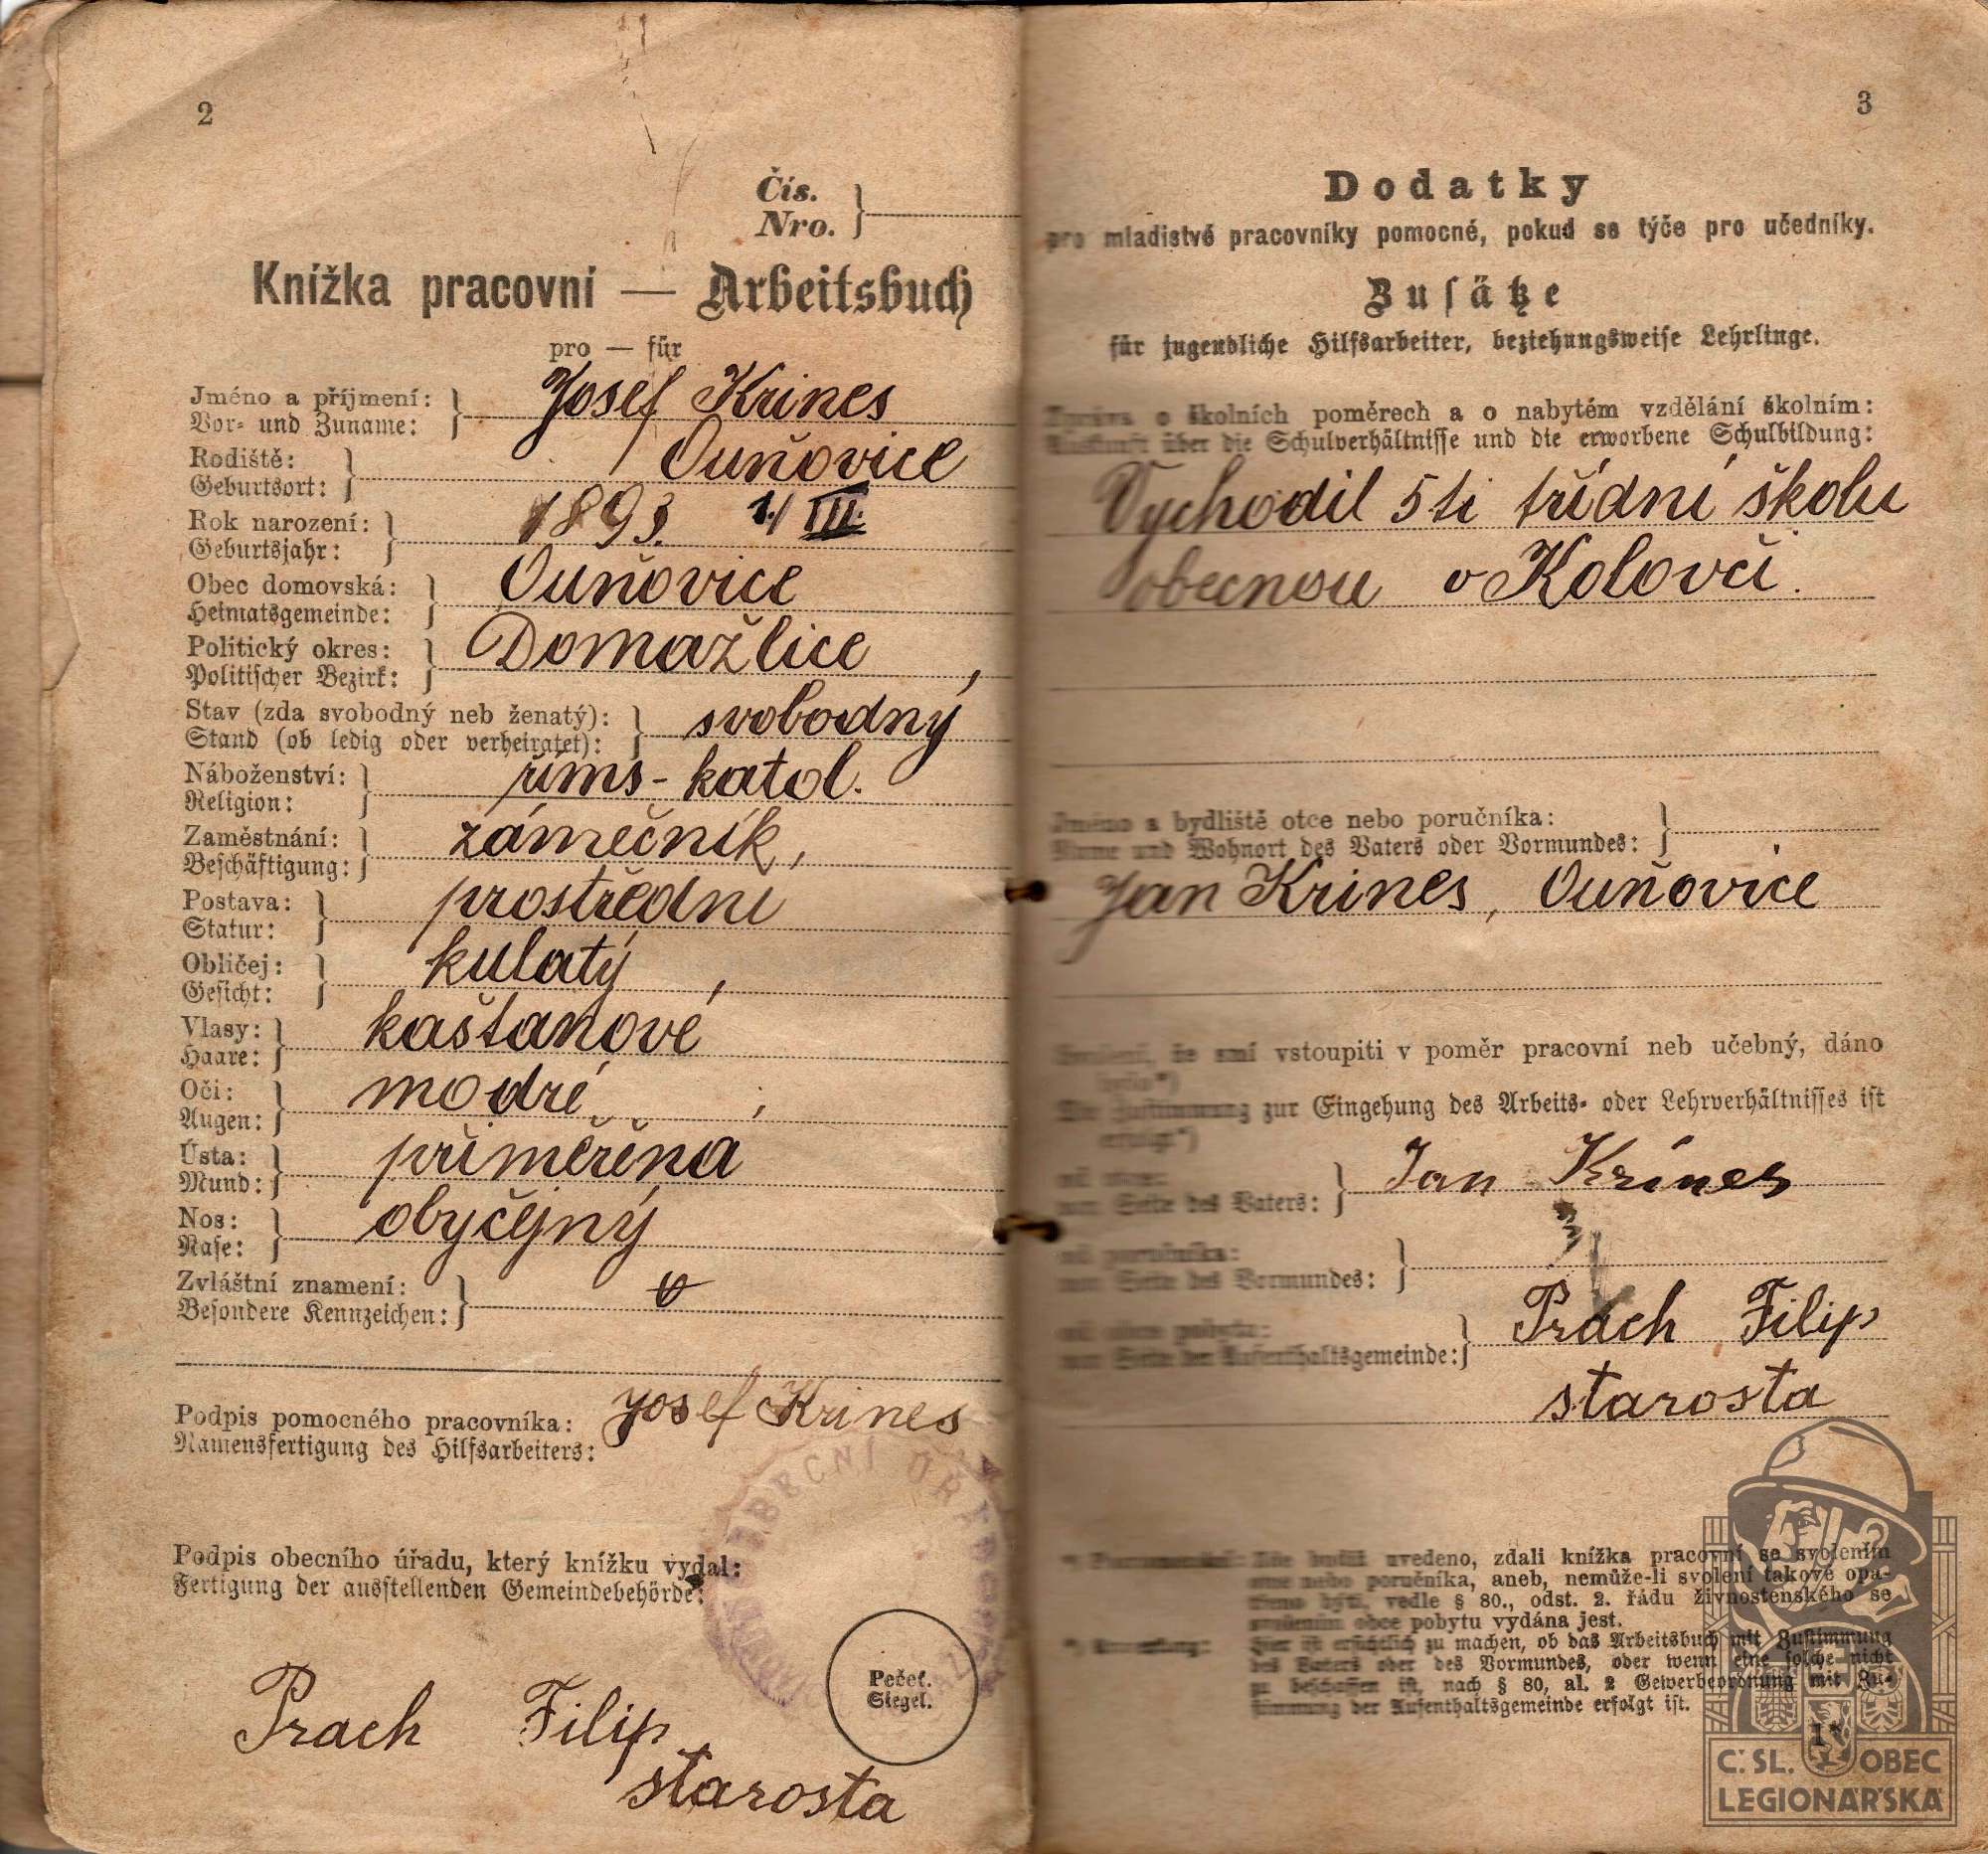 2
Čís.
Nro.
Knížka pracovní — Arbeitsbuch
pro — für
Jméno a příjmení:
Vor- und Zuname:
Josef Krines
Rodiště:
Geburtsort:
Ouňovice
Rok narození:
Geburtsjahr:
1893. 1./III.
Obec domovská:
Heimatsgemeinde:
Ouňovice
Politický okres:
Politischer Bezirk:
Domažlice
Stav (zda svobodný neb ženatý):
Stand (ob ledig oder verheiratet):
svobodný
Náboženství:
Religion:
řims-katol.
Zaměstnání:
Beschäftigung:
zámečník,
Postava:
Statur:
prostřední
Obličej:
Gesicht:
kulatý
Vlasy:
Haare:
kaštanové
Oči:
Augen:
modré
Ústa:
Mund:
přiměřena
Nos:
Nase:
obyčejný
Zvláštní znamení:
Besondere Kennzeichen:
Podpis pomocného pracovníka:
Namensfertigung des Hilfsarbeiters:
Josef Krines
OBECNÍ
Podpis obecního úřadu, který knížku vydal:
Fertigung der ausstellenden Gemeindebehörde:
Pečeť.
Siegel.
Prach Filip
starosta
3
Dodatky
pro mladistvé pracovníky pomocné, pokud se týče pro učedníky.
Zusätze
für jugendliche Hilfsarbeiter, beziehungsweise Lehrlinge.
Zpráva o školních poměrech a o nabytém vzdělání školním:
Auskunft über die Schulverhältnisse und die erworbene Schulbildung:
Vychodil 5ti třídní školu
obecnou v Kolovči.
Jméno a bydliště otce nebo poručníka:
Name und Wohnort des Vaters oder Vormundes:
Jan Krines, Ouňovice
Svolení, že smí vstoupiti v poměr pracovní neb učebný, dáno
bylo*)
Die Zustimmung zur Eingehung des Arbeits- oder Lehrverhältnisses ist
erfolgt*)
od otce:
von Seite des Vaters:
Jan Krines
od poručníka:
von Seite des Vormundes:
od obce pobytu:
von Seite der Aufenthaltsgemeinde:
Prach Filip
starosta
*) Poznamenání: Zde budiž uvedeno, zdali knížka pracovní se svolením
otce nebo poručníka, aneb, nemůže-li svolení takové opa-
třeno býti, vedle § 80., odst. 2. řádu živnostenského se
svolením obce pobytu vydána jest.
*) Anmerkung: Hier ist ersichtlich zu machen, ob das Arbeitsbuch mit Zustimmung
des Vaters oder des Vormundes, oder wenn eine solche nicht
zu beschaffen ist, nach § 80, al. 2 Gewerbeordnung mit Zu-
stimmung der Aufenthaltsgemeinde erfolgt ist.
1*
Č. SL. OBEC
LEGIONÁŘSKÁ